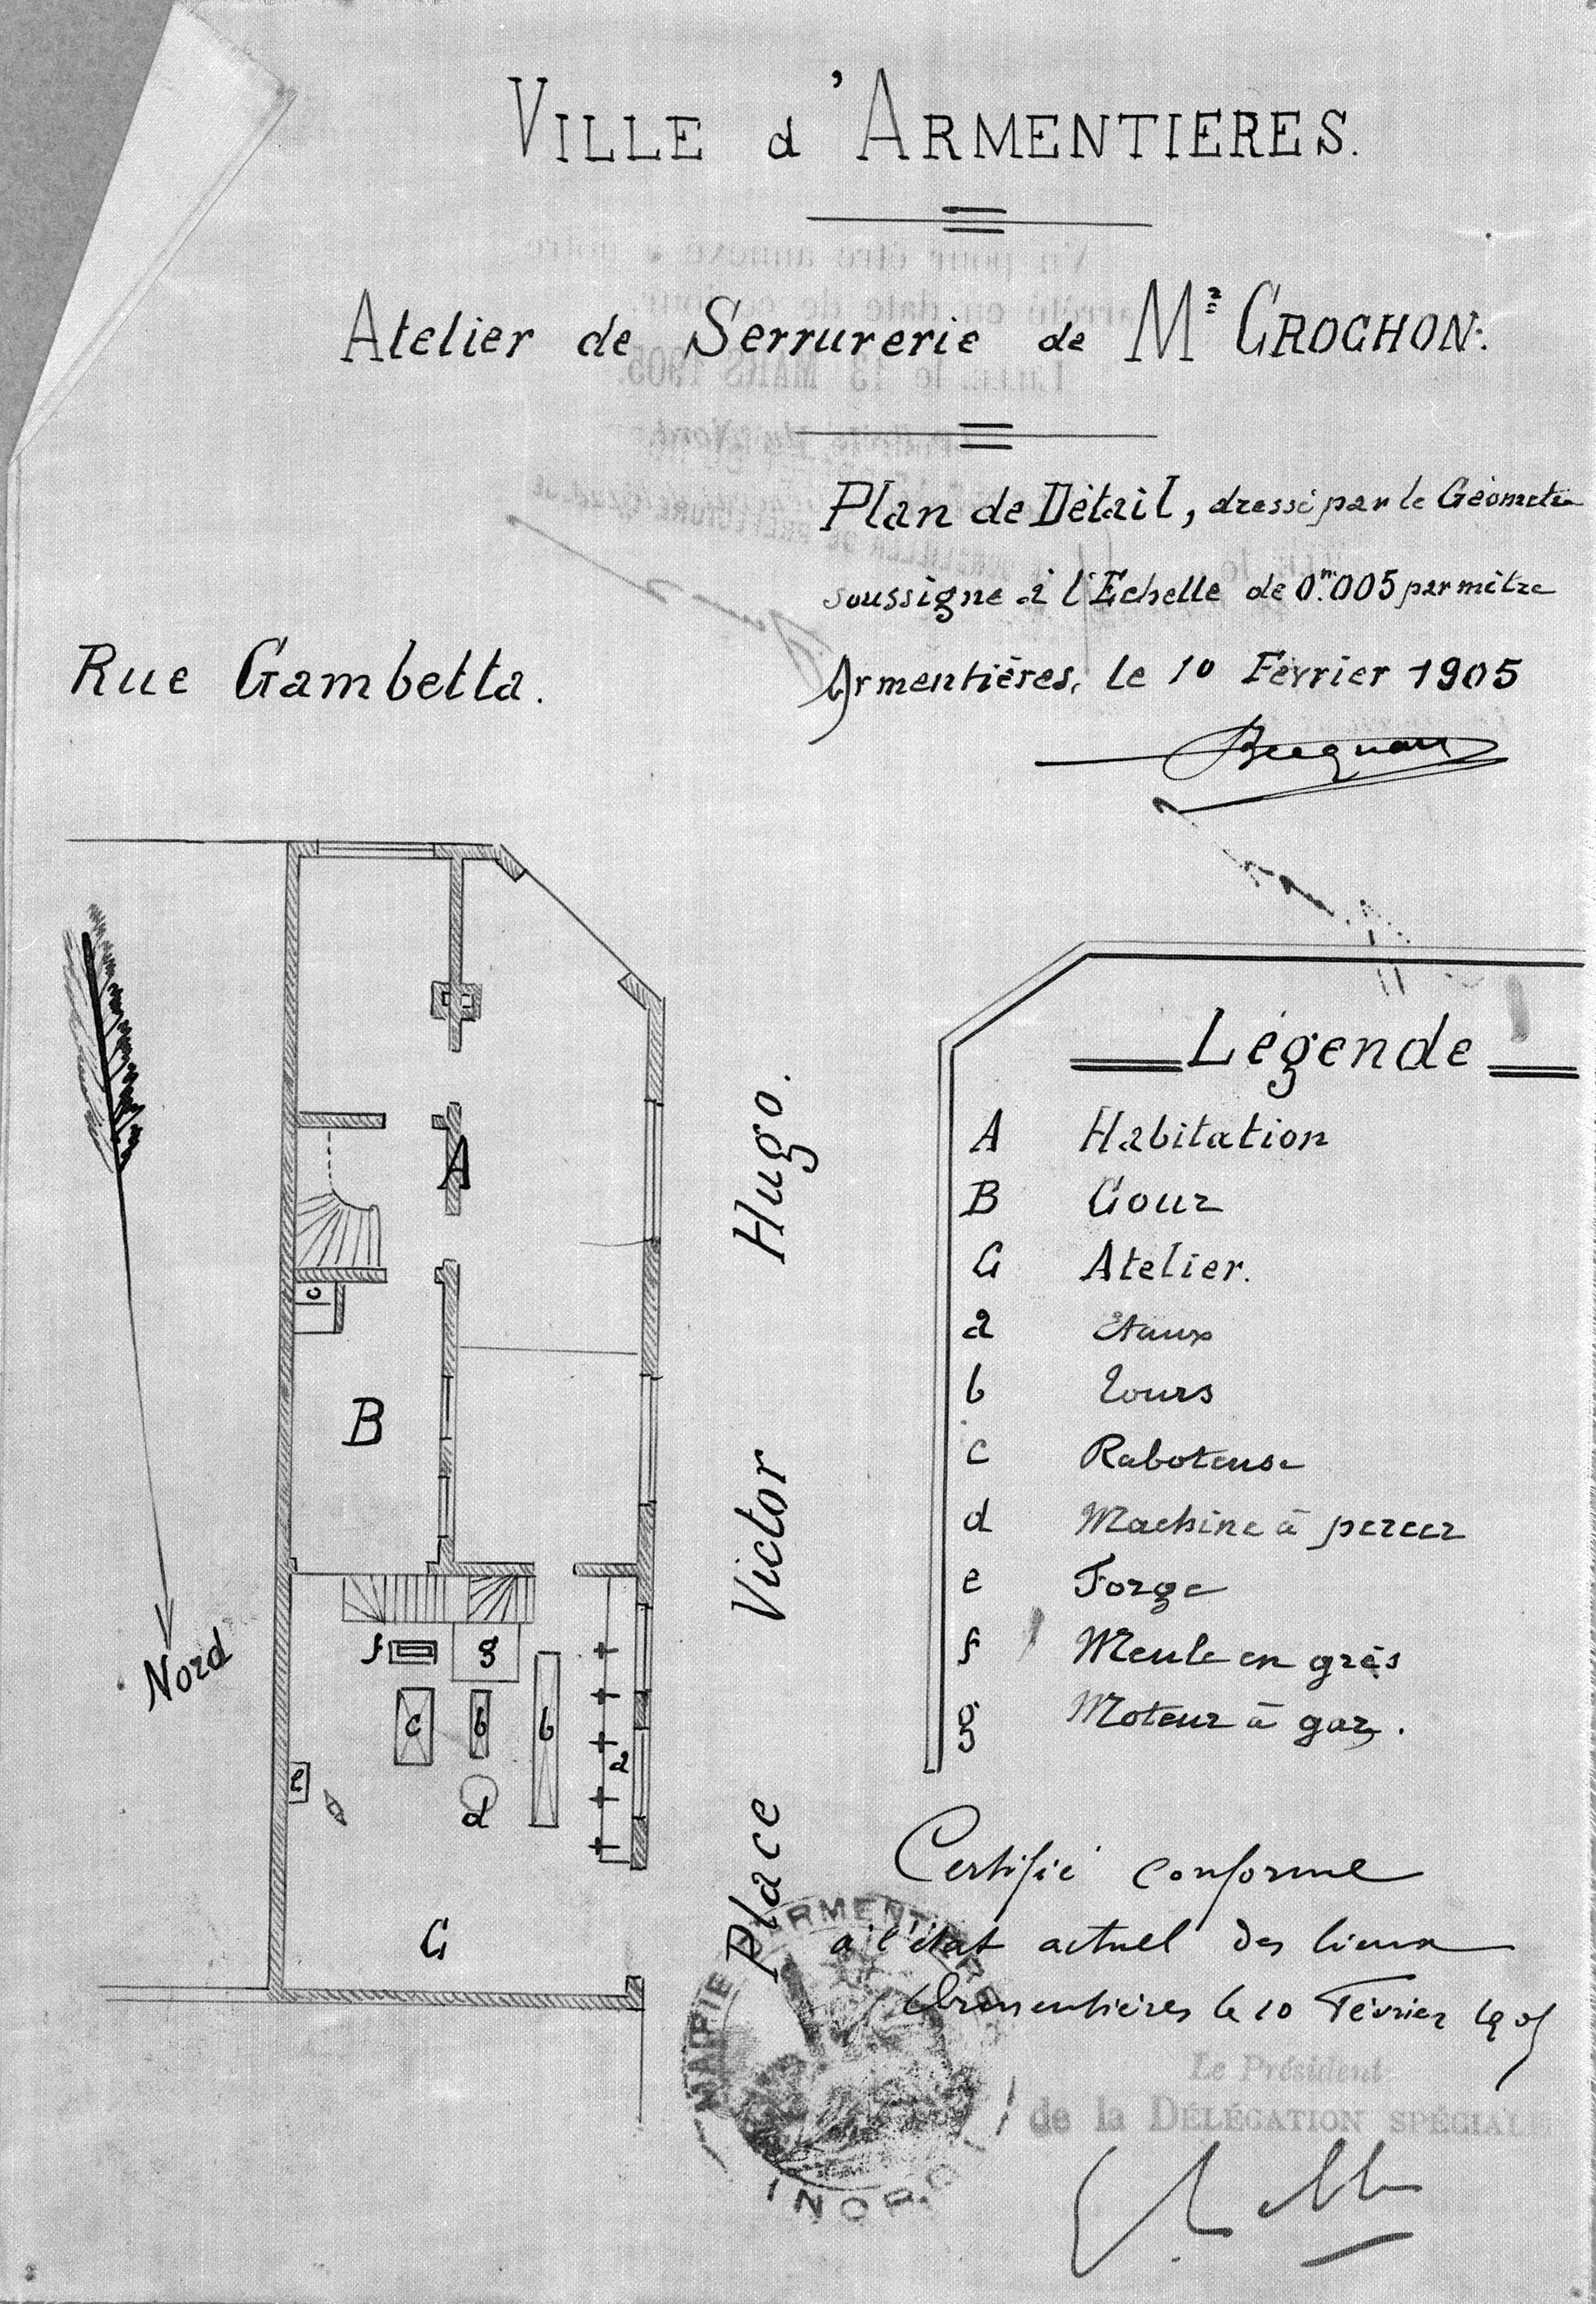 VILLE d'ARMENTIERES.
Atelier de Serrurerie de Mr CROCHON.
Plan de Détail, dressé par le Géomètre
soussigné à l'Echelle de 0m.005 par mètre
Armentières, le 10 Février 1905
Rue Gambetta.
Légende
A Habitation
B Cour
C Atelier.
a Etaux
b Tours
c Raboteuse
d Machine à percer
e Forge
f Meule en grès
g Moteur à gaz.
Place Victor Hugo.
Nord
A
B
f
g
c
b
b
a
e
d
C
Certifié conforme
à l'état actuel des lieux
Armentières le 10 Février 1905
Le Président
de la DÉLÉGATION SPÉCIALE
MAIRIE D'ARMENTIÈRES
(NORD)
Vu pour être annexé à notre
arrêté en date de ce jour.
LILLE, le 13 MARS 1905.